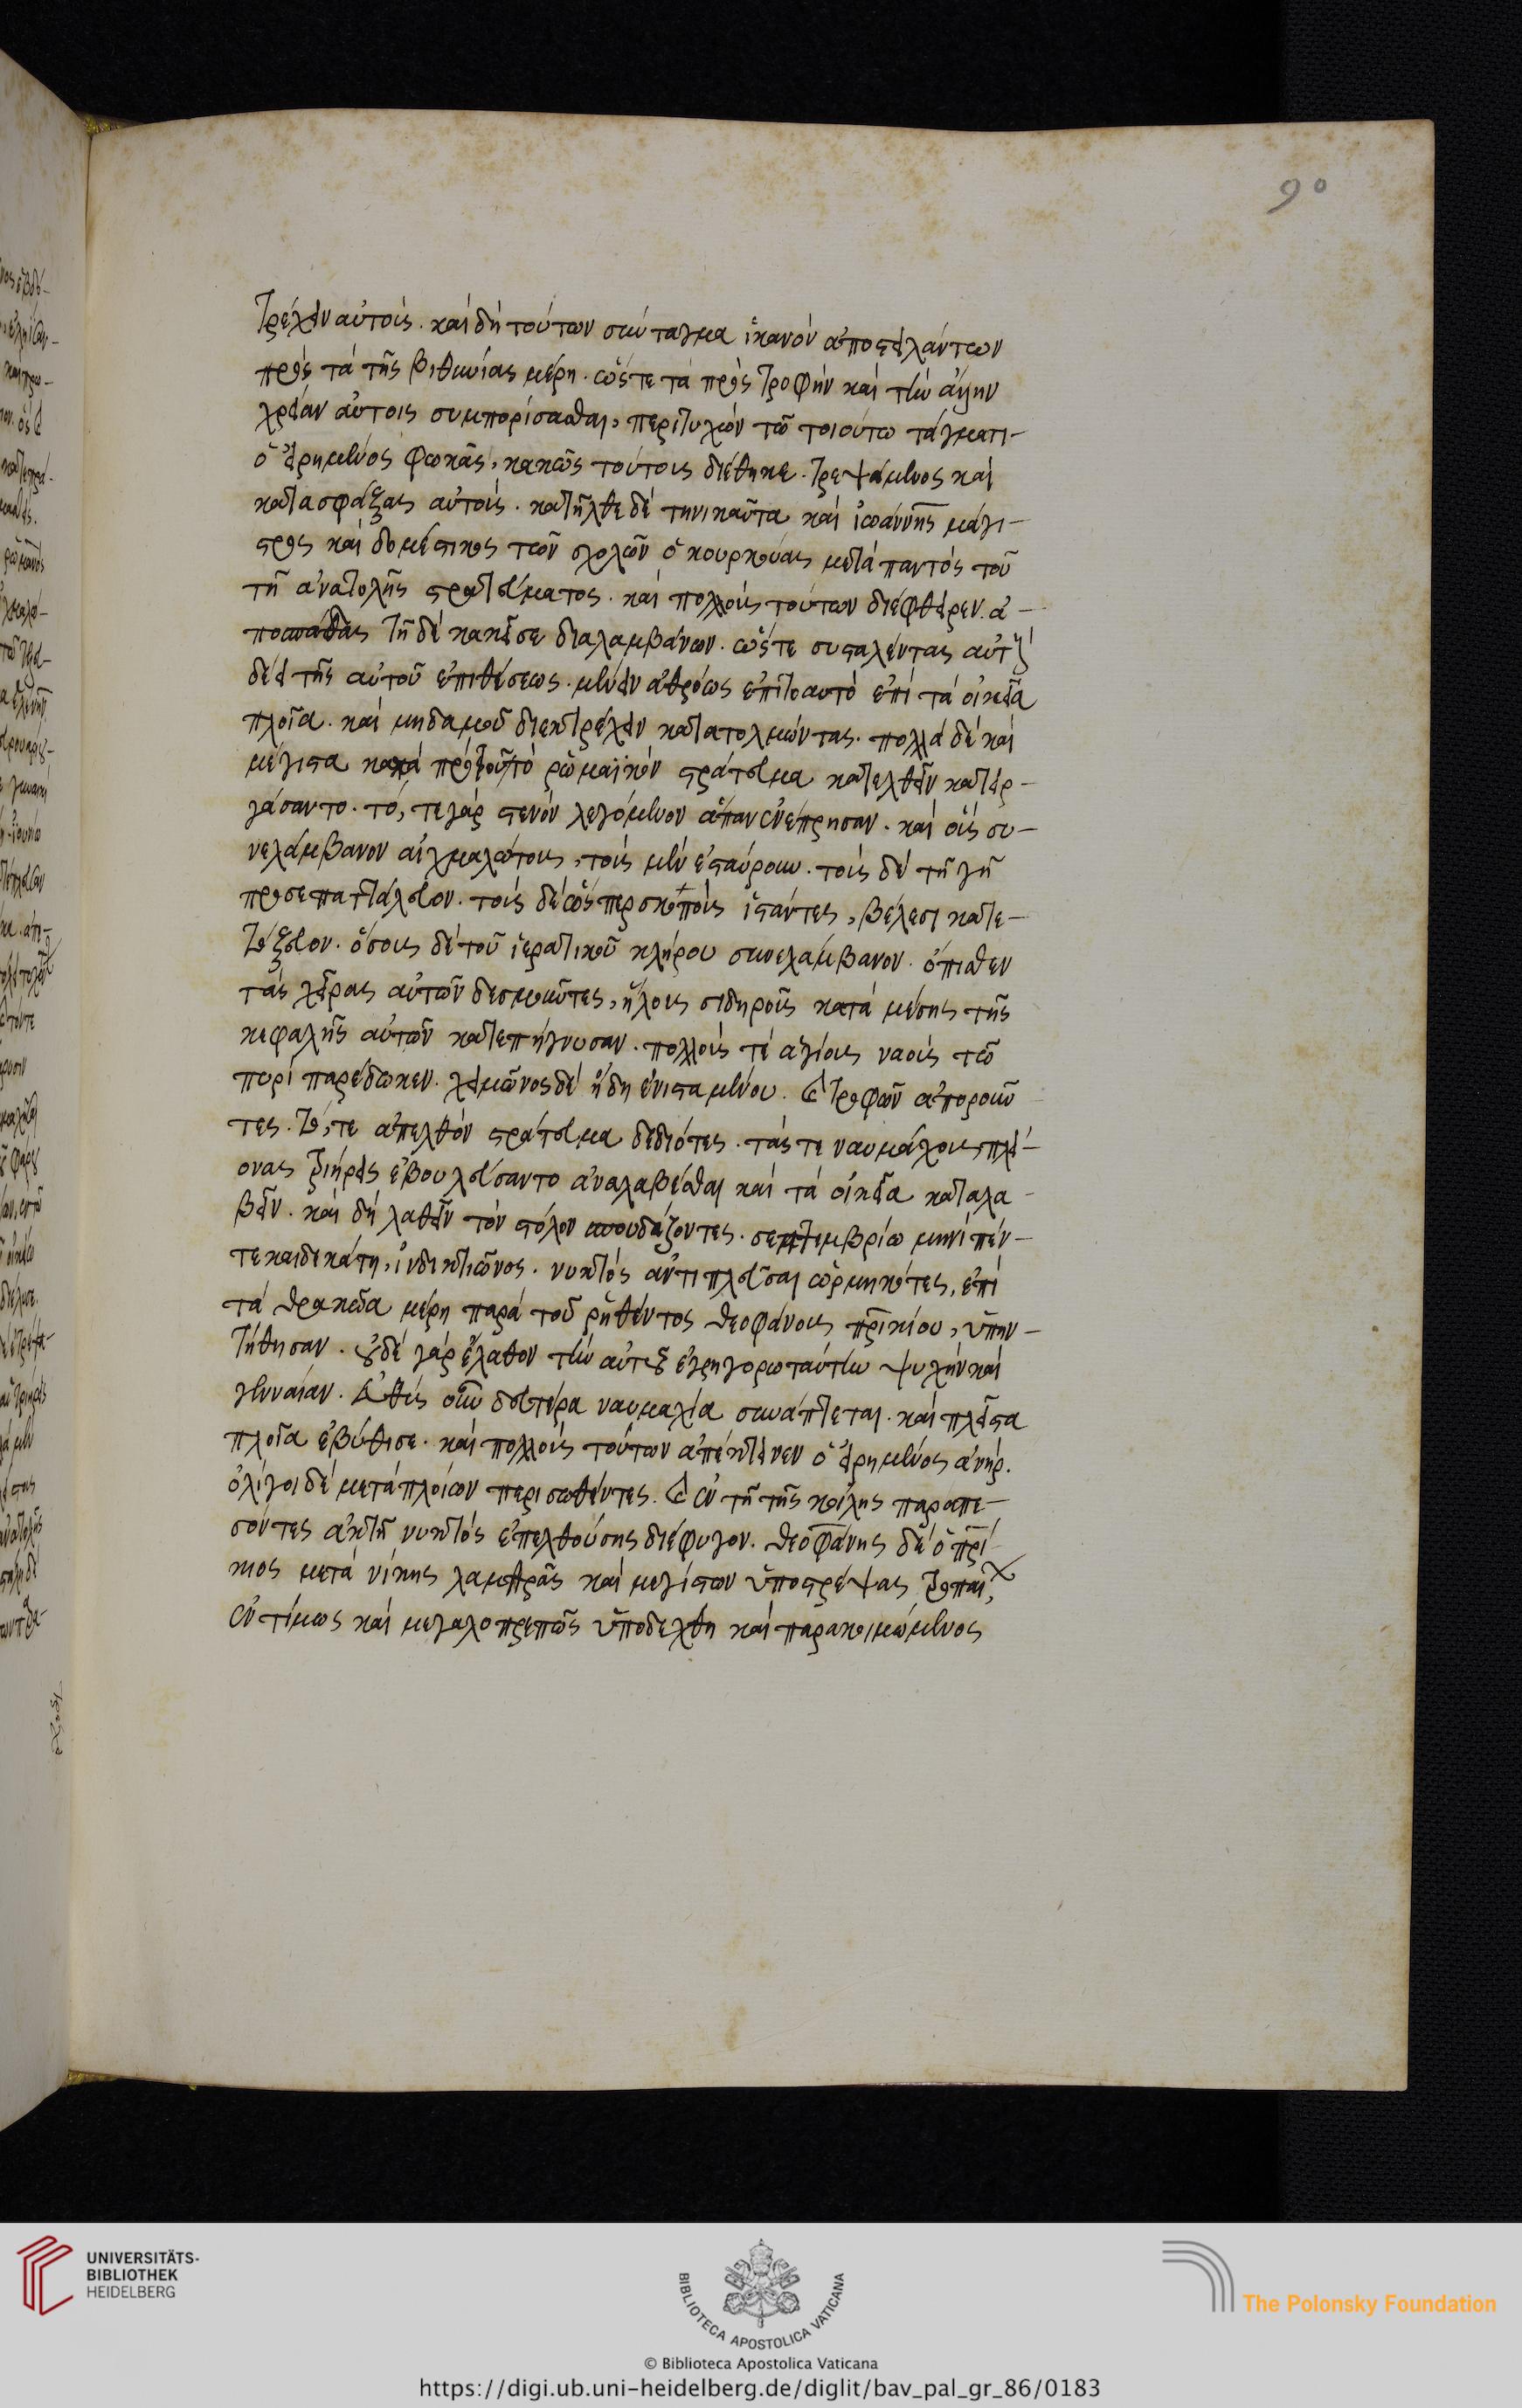 90
τρέχειν αὐτοῖς. καὶ δὴ τούτων σύνταγμα ἱκανὸν ἀποστειλάντων
πρὸς τὰ τῆς βιθυνίας μέρη. ὥστε τὰ πρὸς τροφὴν καὶ τὴν ἄλλην
χρείαν αὐτοῖς συμπορίσασθαι, περιτυχὼν τῶ τοιούτω τάγματι
ὁ εἰρημένος φωκᾶς, κακῶς τούτους διέθηκε. τρεψάμενος καὶ
κατασφάξας αὐτούς. κατῆλθε δὲ τηνικαῦτα καὶ ἰωάννης μάγι-
στρος καὶ δομέστικος τῶν σχολῶν ὁ κουρκούας μετὰ παντὸς τοῦ
τῆ ἀνατολῆς στρατεύματος. καὶ πολλοὺς τούτων διέφθειρεν. ἀ-
ποσπαθὰς τῆδε κακεῖσε διαλαμβάνων. ὥστε συσταλέντας αὐτοὺς
δέει τῆς αὐτοῦ ἐπιθέσεως. μένειν ἀθρόως ἐπιτοαυτὸ ἐπὶ τὰ οἰκεῖα
πλοῖα. καὶ μηδαμοῦ διεκτρέχειν κατατολμώντας. πολλὰ δὲ καὶ
μέγιστα κακὰ πρὸ τοῦ τὸ ῥωμαϊκὸν στράτευμα κατελθεῖν κατειρ-
γάσαντο. τό, τε γὰρ στενὸν λεγόμενον ἅπαν ἐνέπρησαν. καὶ οὓς συ-
νελάμβανον αἰχμαλώτους, τοὺς μὲν ἐσταύρουν. τοὺς δὲ τῆ γῆ
προσεπαττάλευον. τοὺς δὲ ὥσπερ σκοποὺς ἱστάντες, βέλεσι κατε-
τόξευον. ὅσους δὲ τοῦ ἱερατικοῦ κλήρου συνελάμβανον. ὄπισθεν
τὰς χεῖρας αὐτῶν δεσμοῦντες, ἥλους σιδηροῦς κατὰ μέσης τῆς
κεφαλῆς αὐτῶν κατεπήγνυσαν. πολλοὺς τὲ ἁγίους ναοὺς τῶ
πυρὶ παρέδωκεν. χειμῶνος δὲ ἤδη ἐνισταμένου. καὶ τροφῶν ἀποροῦν
τες. τό, τε ἀπελθὸν στράτευμα δεδιότες. τάς τε ναυμάχους πλεί-
ονας τριήρεις ἐβουλεύσαντο ἀναλαβέσθαι καὶ τὰ οἰκεῖα καταλα
βεῖν. καὶ δὴ λαθεῖν τὸν στόλον σπουδάζοντες. σεπτεμβρίω μηνὶ πέν-
τε καιδεκάτη, ἰνδικτιῶνος. νυκτὸς ἀντιπλεῦσαι ὡρμηκότες, ἐπὶ
τὰ θρακῶα μέρη παρὰ τοῦ ῥηθέντος θεοφάνους πρικίου, ὑπην-
τήθησαν. οὐδὲ γὰρ ἔλαθον τὴν αὐτοῦ ἐγρηγορωτάτην ψυχὴν καὶ
γενναίαν. εὐθὺς οὖν δευτέρα ναυμαχία συνάπτεται. καὶ πλεῖστα
πλοῖα ἐβύθισε. καὶ πολλοὺς τούτων ἀπέκτεινεν ὁ εἰρημένος ἀνήρ.
ὀλίγοι δὲ μετὰ πλοίων περισωθέντες. καὶ ἐν τῆ τῆς κοίλης παραπε-
σόντες ἀκτῆ νυκτὸς ἐπελθούσης διέφυγον. θεοφάνης δὲ ὁ πρί-
κιος μετὰ νίκης λαμπρᾶς καὶ μεγίστων ὑποστρέψας τροπαί,
ἐντίμως καὶ μεγαλοπρεπῶς ὑπεδέχθη καὶ παρακοιμώμενος
UNIVERSITÄTS-
BIBLIOTHEK
HEIDELBERG
BIBLIOTECA APOSTOLICA VATICANA
The Polonsky Foundation
© Biblioteca Apostolica Vaticana
https://digi.ub.uni-heidelberg.de/diglit/bav_pal_gr_86/0183